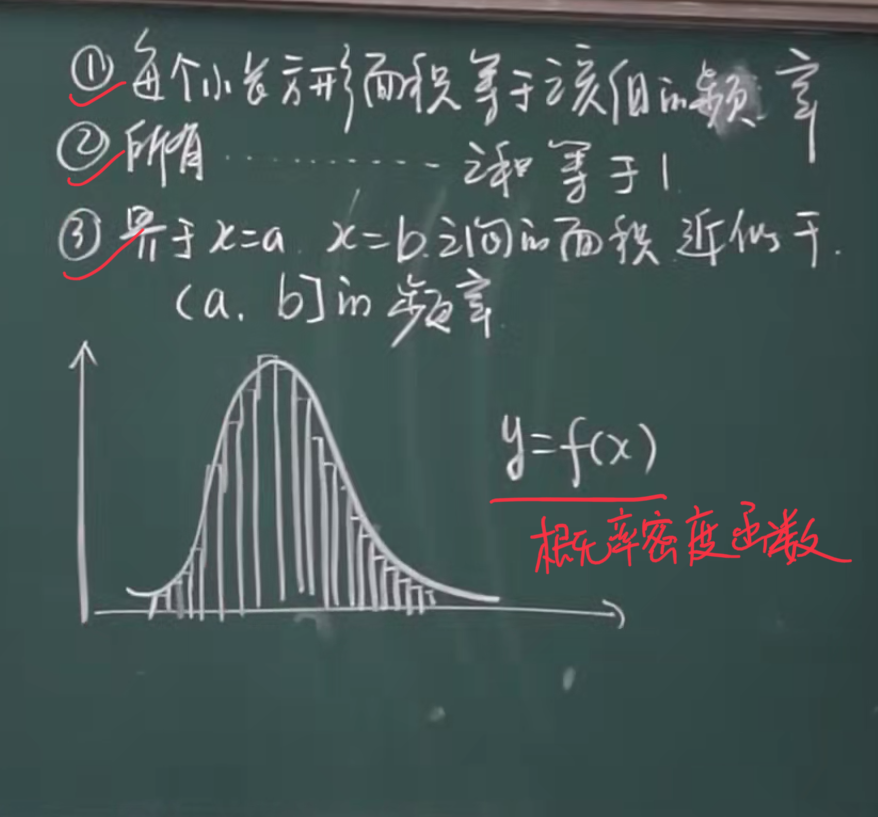 ①每个小长方形面积等于该组的频率
②所有············之和等于1
③界于x=a.x=b.之间的面积近似于.
(a.b]的频率.
y=f(x)
概率密度函数